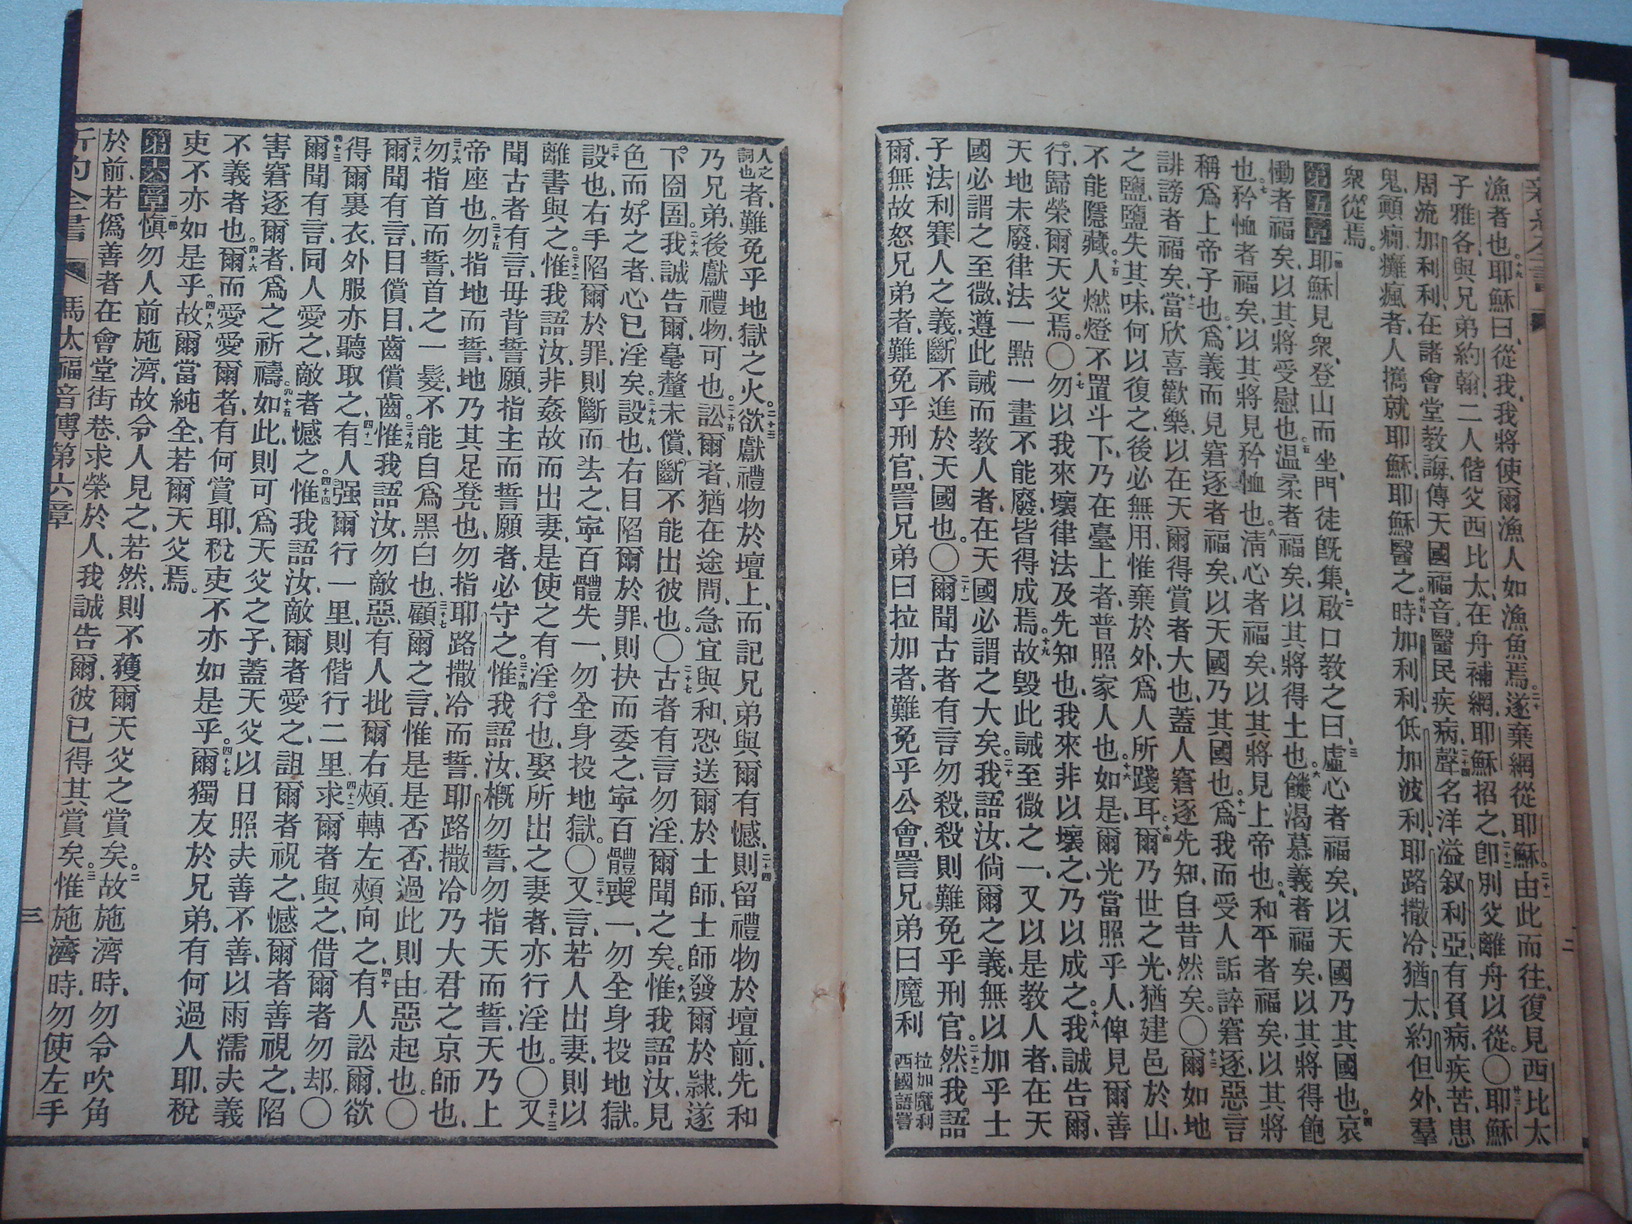 漁者也、耶穌曰、從我、我將使爾漁人如漁魚焉、遂棄網從耶穌。由此而往、復見西比太
子雅各、與兄弟約翰、二人偕父西比太在舟補網、耶穌招之、卽別父離舟以從。〇耶穌
周流加利利、在諸會堂教誨、傳天國福音、醫民疾病、聲名洋溢叙利亞、有負病、疾苦、患
鬼、顚癎、癱瘋者、人攜就耶穌、耶穌醫之、時加利利、低加波利、耶路撒冷、猶太、約但外、羣
衆從焉。
第五章耶穌見衆、登山而坐、門徒旣集、啟口教之曰、虛心者福矣、以天國乃其國也、哀
慟者福矣、以其將受慰也、溫柔者福矣、以其將得土也、饑渴慕義者福矣、以其將得飽
也、矜恤者福矣、以其將見矜恤也、淸心者福矣、以其將見上帝也、和平者福矣、以其將
稱爲上帝子也、爲義而見窘逐者福矣、以天國乃其國也、爲我而受人詬誶窘逐、惡言
誹謗者福矣、當欣喜歡樂、以在天爾得賞者大也、蓋人窘逐先知、自昔然矣。〇爾如地
之鹽、鹽失其味、何以復之、後必無用、惟棄於外、爲人所踐耳、爾乃世之光、猶建邑於山、
不能隱藏、人燃燈、不置斗下、乃在臺上者、普照家人也、如是、爾光當照乎人、俾見爾善
行、歸榮爾天父焉。〇勿以我來壞律法及先知也、我來非以壞之、乃以成之、我誠告爾、
天地未廢、律法一點一畫不能廢、皆得成焉、故毀此誡至微之一、又以是教人者、在天
國必謂之至微、遵此誡而教人者、在天國必謂之大矣、我語汝、倘爾之義、無以加乎士
子法利賽人之義、斷不進於天國也。〇爾聞古者有言勿殺、殺則難免乎刑官、然我語
爾、無故怒兄弟者、難免乎刑官、詈兄弟曰拉加者、難免乎公會、詈兄弟曰魔利拉加魔利西國語詈
人之詞也者、難免乎地獄之火、欲獻禮物於壇上、而記兄弟與爾有憾、則留禮物於壇前、先和
乃兄弟、後獻禮物可也、訟爾者猶在途間、急宜與和、恐送爾於士師、士師發爾於隸、遂
下囹圄、我誠告爾、毫釐未償、斷不能出彼也。〇古者有言勿淫、爾聞之矣、惟我語汝、見
色而好之者、心已淫矣、設也、右目陷爾於罪、則抉而委之、寧百體喪一、勿全身投地獄、
設也、右手陷爾於罪、則斷而去之、寧百體失一、勿全身投地獄。〇又言、若人出妻、則以
離書與之、惟我語汝、非姦故而出妻、是使之有淫行也、娶所出之妻者、亦行淫也。〇又
聞古者有言、毋背誓願、指主而誓願者必守之、惟我語汝、槪勿誓、勿指天而誓、天乃上
帝座也、勿指地而誓、地乃其足凳也、勿指耶路撒冷而誓、耶路撒冷乃大君之京師也、
勿指首而誓、首之一髮、不能自爲黑白也、顧爾之言、惟是是否否、過此則由惡起也。〇
爾聞有言、目償目、齒償齒、惟我語汝、勿敵惡、有人批爾右頰、轉左頰向之、有人訟爾、欲
得爾裏衣、外服亦聽取之、有人强爾行一里、則偕行二里、求爾者與之、借爾者勿却。〇
爾聞有言、同人愛之、敵者憾之、惟我語汝、敵爾者愛之、詛爾者祝之、憾爾者善視之、陷
害窘逐爾者、爲之祈禱、如此則可爲天父之子、蓋天父以日照夫善不善、以雨濡夫義
不義者也、爾而愛愛爾者、有何賞耶、稅吏不亦如是乎、爾獨友於兄弟、有何過人耶、稅
吏不亦如是乎、故爾當純全、若爾天父焉。
第六章愼勿人前施濟、故令人見之、若然、則不獲爾天父之賞矣、故施濟時、勿令吹角
於前、若僞善者在會堂街巷、求榮於人、我誠告爾、彼已得其賞矣、惟施濟時、勿使左手
新約全書　馬太福音傳第六章　三